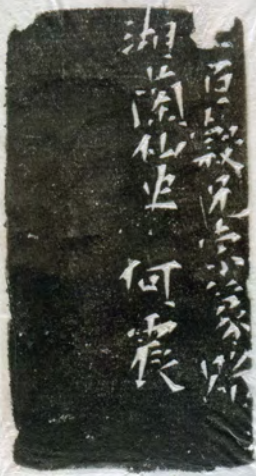 王百穀兄索篆贈
湘蘭仙史 何震